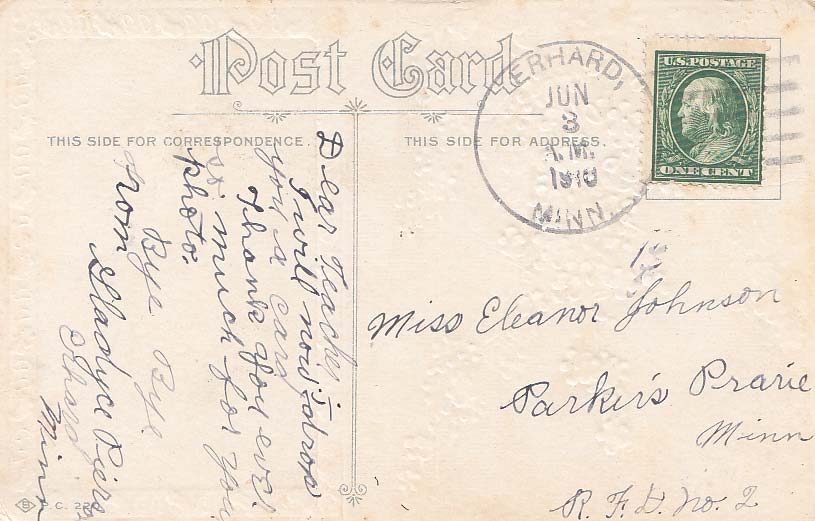 Post Card
THIS SIDE FOR CORRESPONDENCE.
THIS SIDE FOR ADDRESS.
ERHARD,
JUN
3
A.M.
1910
MINN.
U.S. POSTAGE
ONE CENT
Dear Teacher:-
I will now drop
you a card
Thank you ever
so much for you
photo.
Bye Bye
From
Gladyce
Erhard
Minn
Miss Eleanor Johnson
Parkers Prarie
Minn
R. F. D. No. 2
P.C. 22